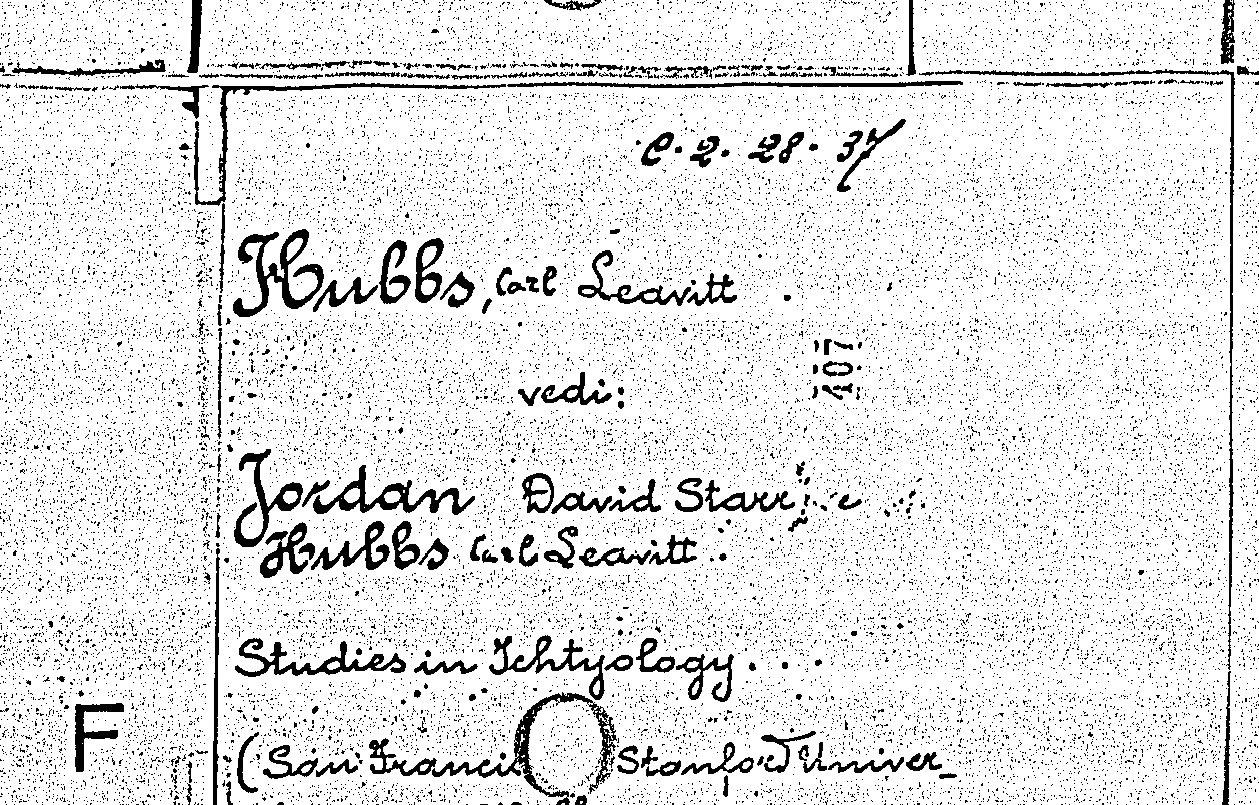 C. 2. 28. 37
Hubbs, Carl Leavitt .
107
vedi:
Jordan David Starr e
Hubbs Carl Leavitt .
Studies in Ichtyology . . .
F
(San Franci Stanford Univer_